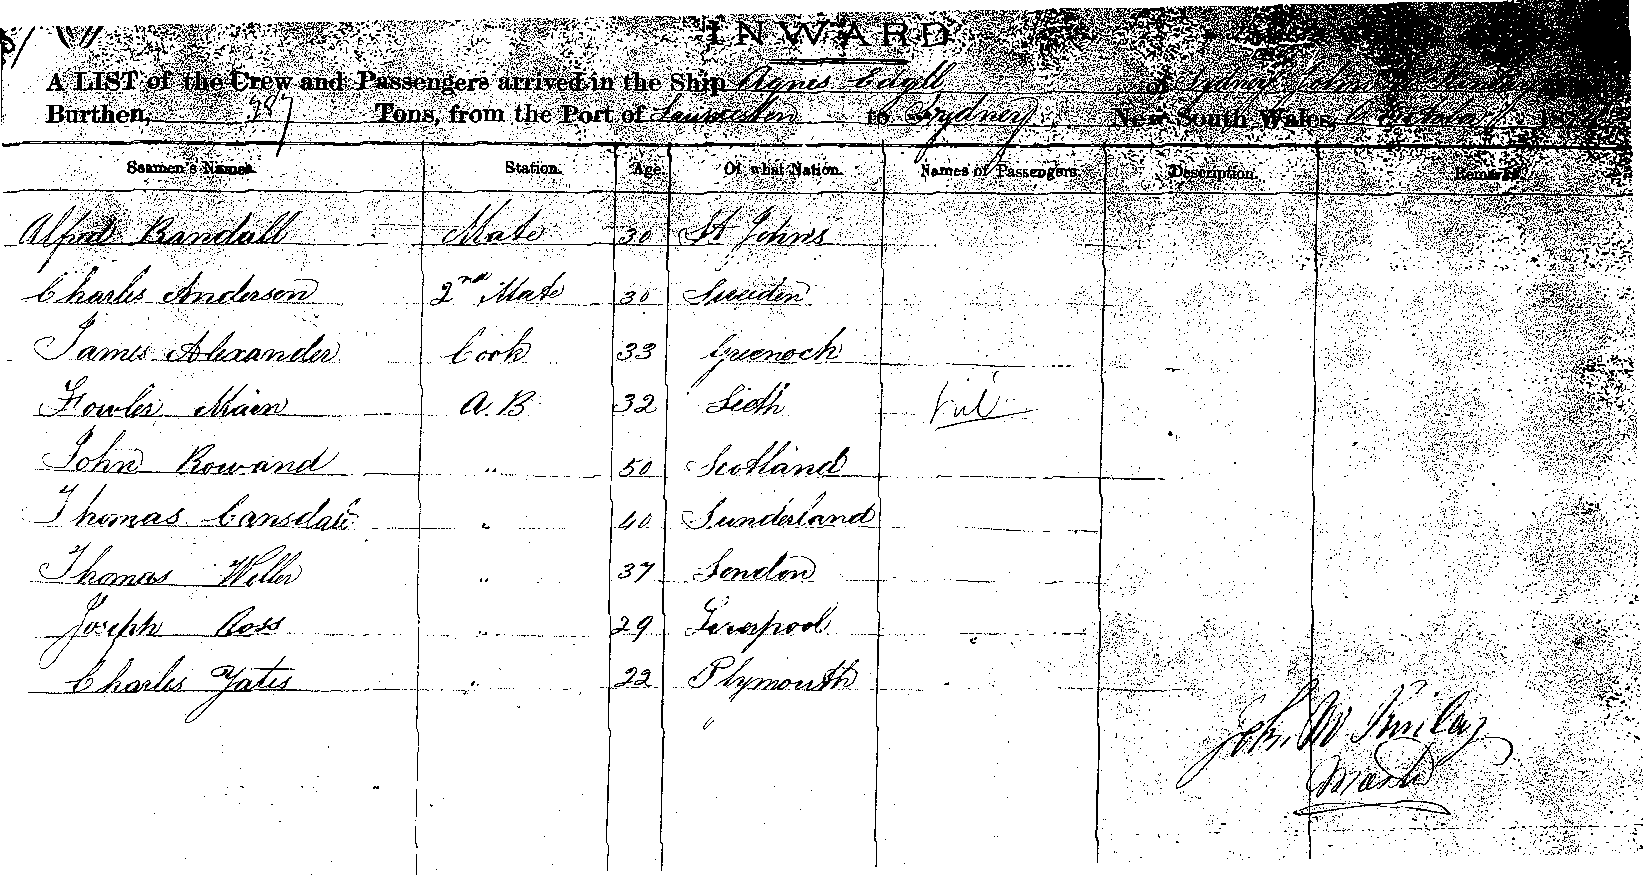 INWARD
A LIST of the Crew and Passengers arrived in the Ship Agnes Edgell of Sydney John
Burthen, 387 Tons, from the Port of Launceston to Sydney New South Wales,
Seamen's Names. Station. Age Of what Nation. Names of Passengers. Description. Remarks
Alfred Randall Mate 30 St Johns
Charles Anderson 2nd Mate 30 Sweden
James Alexander Cook 33 Greenock
Fowler Main A.B 32 Leith Nil
John Rowand " 50 Scotland
Thomas Cansdale " 40 Sunderland
Thomas Weller " 37 London
Joseph Ross " 29 Liverpool
Charles Yates " 22 Plymouth
John M Kinlay
Master